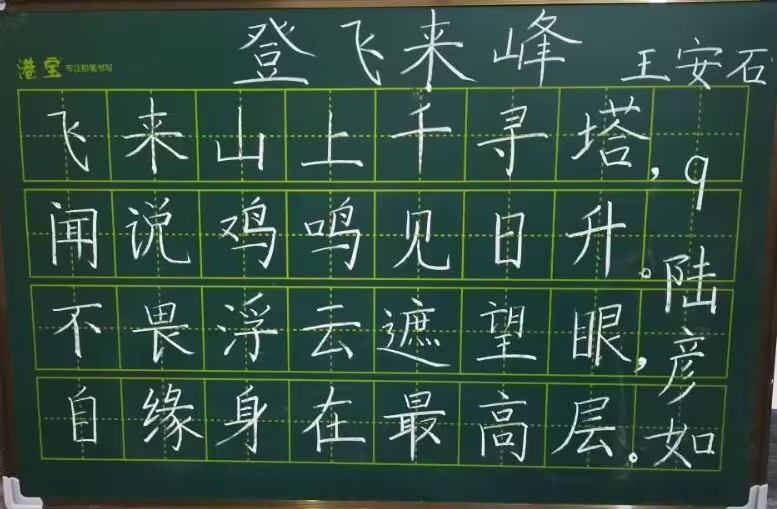 港宝 专注粉笔书写
登飞来峰 王安石
飞来山上千寻塔，
闻说鸡鸣见日升。
不畏浮云遮望眼，
自缘身在最高层。
9
陆彦如